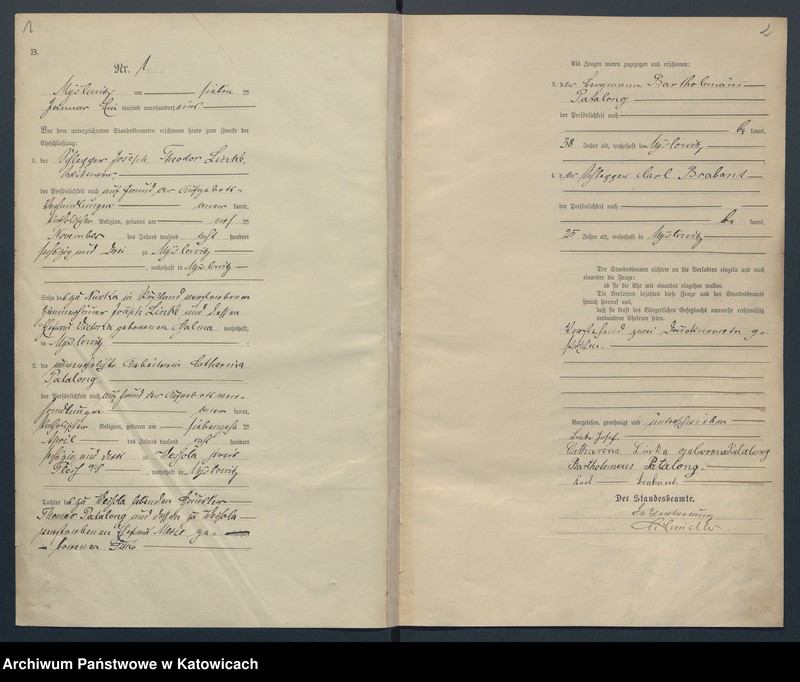 1
B.
Nr. 1.
Myslowitz am sieben ten
Januar Ein tausend neunhundert eins
Vor dem unterzeichneten Standesbeamten erschienen heute zum Zwecke der
Eheschließung:
1. der Schlepper Joseph Theodor Linke,
der Persönlichkeit nach auf Grund der Aufgebots-
verhandlungen aner kannt,
katholischer Religion, geboren am ten
November des Jahres tausend acht hundert
siebzig und drei zu Myslowitz
, wohnhaft in Myslowitz
Sohn des zu in verstorbenen
Joseph Linke und dessen
Ehefrau Victoria geborenen wohnhaft
in Myslowitz
2. die unverehelichte Arbeiterin Catharina
Patalong
der Persönlichkeit nach auf Grund der Aufgebotsver-
handlungen aner kannt,
katholischer Religion, geboren am siebenzehn ten
April des Jahres tausend acht hundert
siebzig und zu Wessola Kreis
Pleß O/S , wohnhaft in Myslowitz
Tochter des zu Wessola lebenden Häusler
Thomas Patalong und dessen zu Wessola
verstorbenen Ehefrau Marie ge-
borenen
2
Als Zeugen waren zugezogen und erschienen:
3. der Bergmann Bartholomäus
Patalong
der Persönlichkeit nach
be kannt,
38 Jahre alt, wohnhaft in Myslowitz
4. der Schlepper Carl Brabant
der Persönlichkeit nach
be kannt,
25 Jahre alt, wohnhaft in Myslowitz
Der Standesbeamte richtete an die Verlobten einzeln und nach
einander die Frage:
ob sie die Ehe mit einander eingehen wollen.
Die Verlobten bejahten diese Frage und der Standesbeamte
sprach hierauf aus,
daß sie kraft des Bürgerlichen Gesetzbuchs nunmehr rechtmäßig
verbundene Eheleute seien.
Vorstehend zwei Druckworte ge-
strichen.
Vorgelesen, genehmigt und unterschrieben
Linke Josef
Catharina Linke geborene Patalong
Bartholomeus Patalong.
Karl Brabant
Der Standesbeamte.
In Vertretung
Archiwum Państwowe w Katowicach